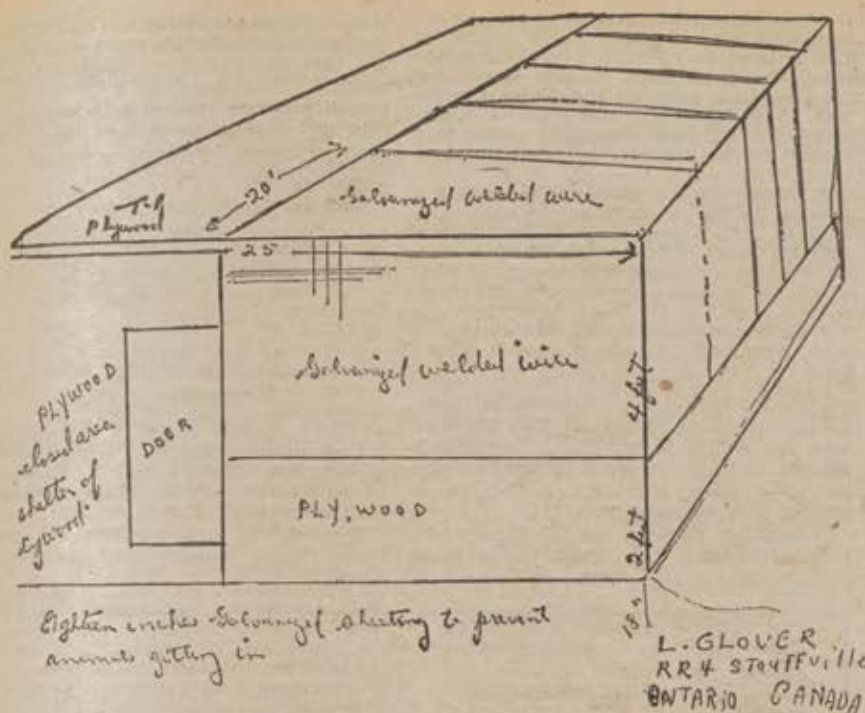 20'
Top
Plywood
Galvanized welded wire
25
Galvanized welded wire
4 feet
PLYWOOD
closed area
shelter of
DOOR
PLY.WOOD
2 feet
18"
Eighteen inches Galvanized sheeting to prevent
animals getting in
L. GLOVER
RR4 STOUFFVille
ONTARIO CANADA